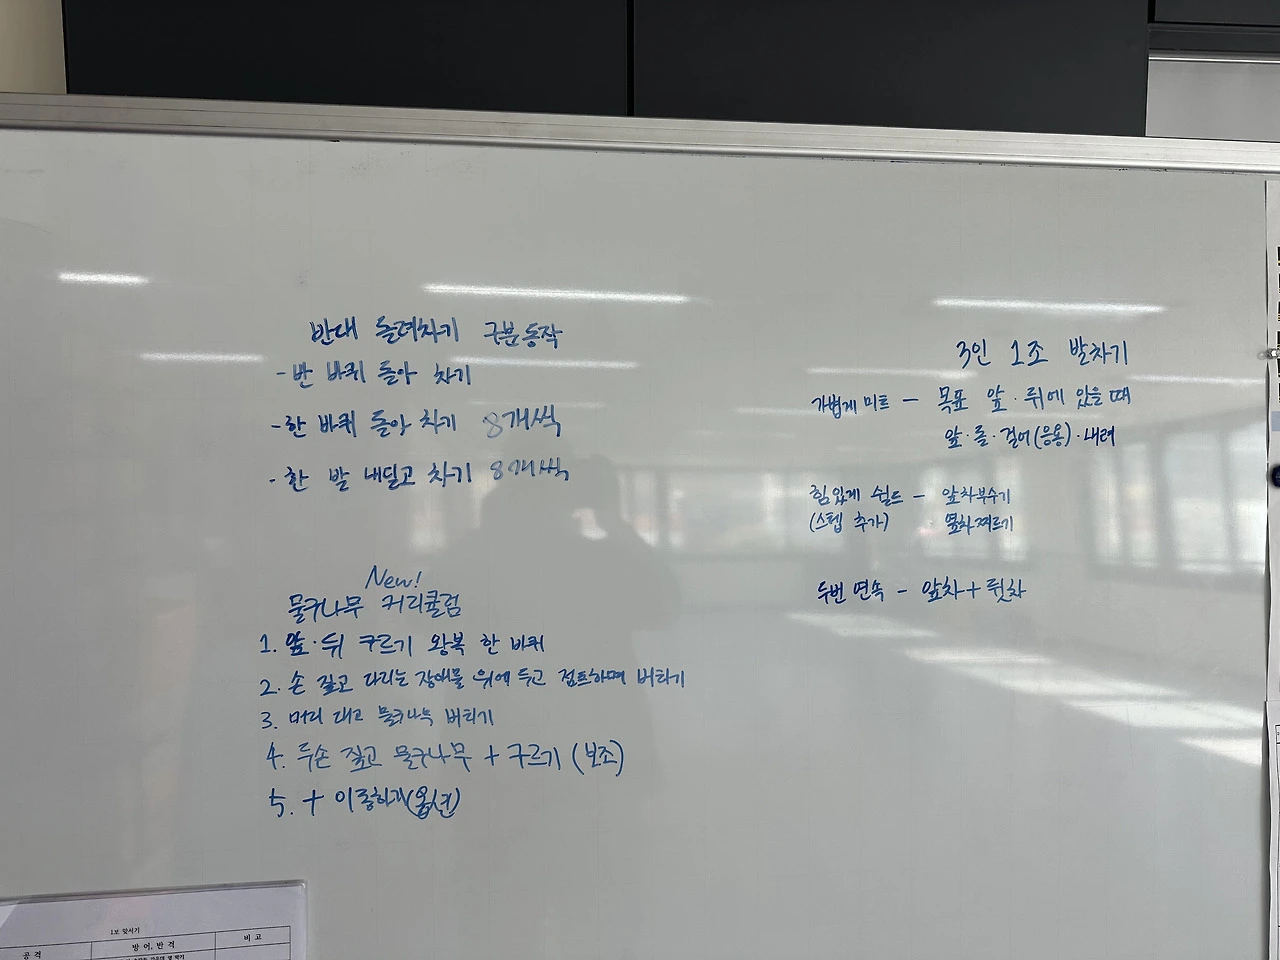 반대 돌려차기 구분동작
- 반 바퀴 돌아 차기
- 한 바퀴 돌아 차기 8개씩
- 한 발 내딛고 차기 8개씩
New!
물구나무 커리큘럼
1. 앞·뒤 구르기 왕복 한 바퀴
2. 손 짚고 다리는 장애물 위에 두고 점프하며 버티기
3. 머리 대고 물구나무 버티기
4. 두손 짚고 물구나무 + 구르기 (보조)
5. + 이동하기(옵션)
3인 1조 발차기
가볍게 미트 - 목표 앞·뒤에 있을 때
앞·돌·걸어(응용)·내려
힘있게 쉴드 - 앞차부수기
(스텝 추가) 옆차찌르기
두번 연속 - 앞차 + 뒷차
1보 맞서기
공 격 방 어, 반 격 비 고